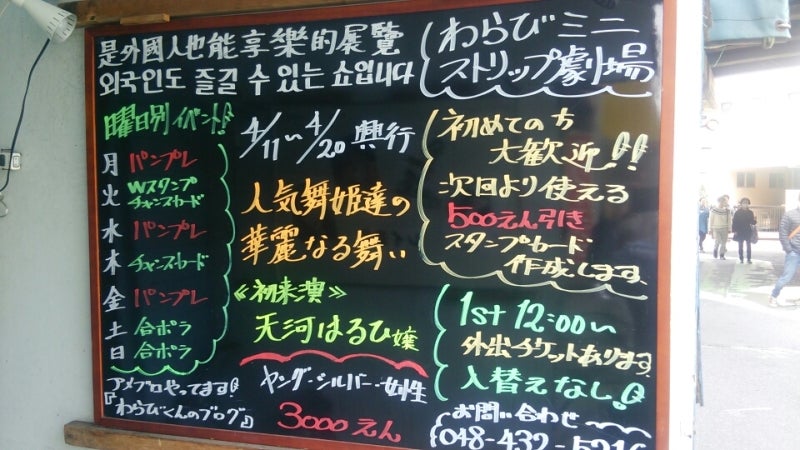 是外國人也能享樂的展覽
외국인도 즐길 수 있는 쇼입니다
わらびミニ
ストリップ劇場
曜日別イベント!
月 パンプレ
火 Wスタンプ
チャンスカード
水 パンプレ
木 チャンスカード
金 パンプレ
土 合ポラ
日 合ポラ
アメブロやってます!
『わらびくんのブログ』
4/11〜4/20興行
人気舞姫達の
華麗なる舞い
≪初来演≫
天河はるひ嬢
ヤング・シルバー・女性
3000えん
初めての方
大歓迎!!
次回より使える
500えん引き
スタンプカード
作成します。
1st 12:00〜
外出チケットあります。
入替えなし。
お問い合わせ
048-432-